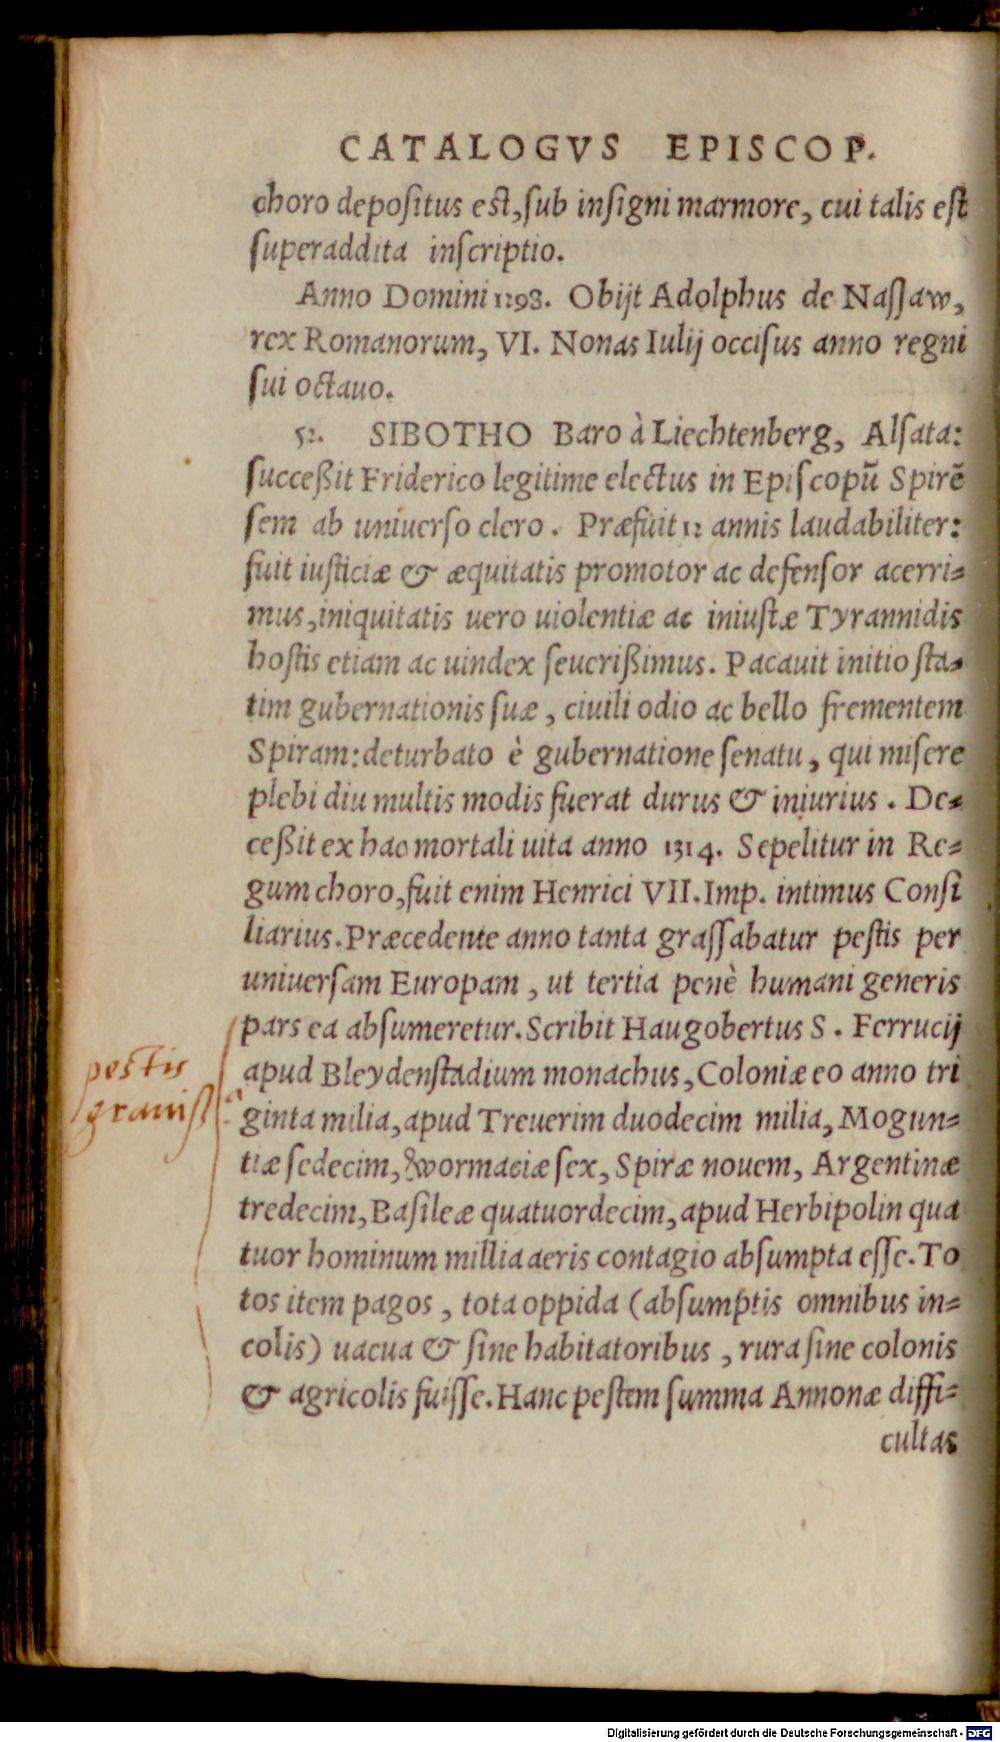 CATALOGVS EPISCOP.
choro depositus est, sub insigni marmore, cui talis est
superaddita inscriptio.
Anno Domini 1298. Obijt Adolphus de Nassaw,
rex Romanorum, VI. Nonas Iulij occisus anno regni
sui octauo.
52. SIBOTHO Baro à Liechtenberg, Alsata:
succeßit Friderico legitime electus in Episcopū Spirē
sem ab uniuerso clero. Præfuit 12 annis laudabiliter:
fuit iusticiæ & æquitatis promotor ac defensor acerri-
mus, iniquitatis uero uiolentiæ ac iniustæ Tyrannidis
hostis etiam ac uindex seuerißimus. Pacauit initio sta-
tim gubernationis suæ, ciuili odio ac bello frementem
Spiram: deturbato è gubernatione senatu, qui misere
plebi diu multis modis fuerat durus & iniurius. De-
ceßit ex hac mortali uita anno 1314. Sepelitur in Re-
gum choro, fuit enim Henrici VII. Imp. intimus Consi
liarius. Præcedente anno tanta grassabatur pestis per
uniuersam Europam, ut tertia penè humani generis
pars ea absumeretur. Scribit Haugobertus S. Ferrucij
apud Bleydenstadium monachus, Coloniæ eo anno tri
ginta milia, apud Treuerim duodecim milia, Mogun-
tiæ sedecim, & wormaciæ sex, Spiræ nouem, Argentinæ
tredecim, Basileæ quatuordecim, apud Herbipolin qua
tuor hominum millia aeris contagio absumpta esse. To
tos item pagos, tota oppida (absumptis omnibus in-
colis) uacua & sine habitatoribus, rura sine colonis
& agricolis fuisse. Hanc pestem summa Annonæ diffi-
cultas
pestis
grauiss
Digitalisierung gefördert durch die Deutsche Forschungsgemeinschaft - DFG